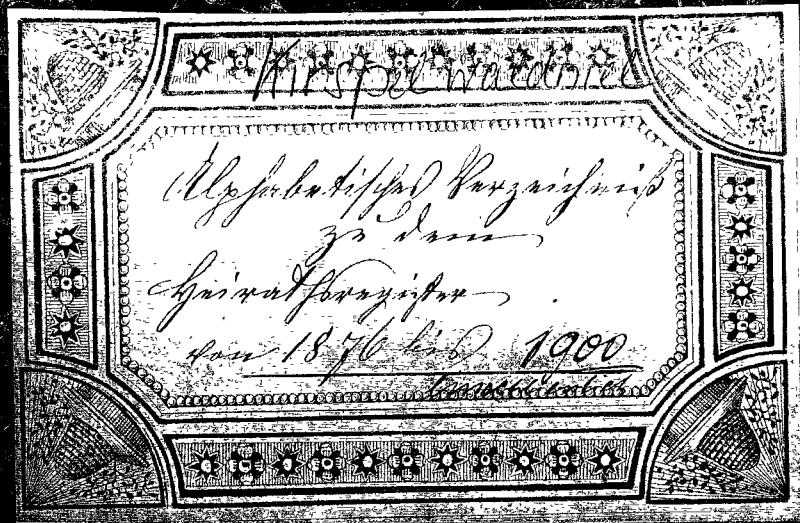 Kirspel Waldniel
Alphabetisches Verzeichniß
zu dem
Heirathsregister
von 1876 bis 1900